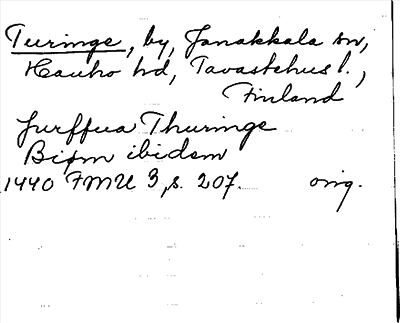 Turinge, by, Janakkala sn,
Hauho hd, Tavastehus l.,
Finland
Jurffua Thuringe
Bipm ibidem
1440 FMU 3, s. 207. orig.